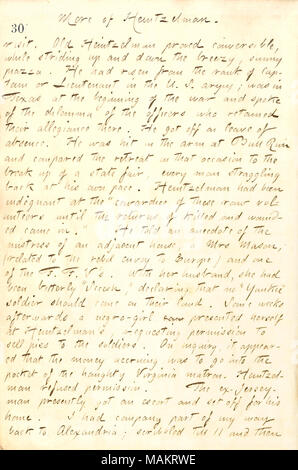 30
More of Heintzelman.
visit. Old Heintzelman proved conversible,
while striding up and down the breezy, sunny
piazza. He had risen from the rank of Cap-
tain or Lieutenant in the U. S. army; was in
Texas at the beginning of the war and spoke
of the dilemma of the officers who retained
their allegiance there. He got off on leave of
absence. He was hit in the arm at Bull Run
and compared the retreat on that occasion to the
break up of a state fair, every man straggling
back at his own pace. Heintzelman had been
indignant at the "cowardice of these raw vol-
unteers until the returns of killed and wound-
ed came in." He told an anecdote of the
mistress of an adjacent house, a Mrs Mason,
(related to the rebel envoy to Europe) and one
of the F. F. V's. With her husband, she had
been bitterly Secesh, declaring that no Yankee
soldier should come on their land. Some weeks
afterwards a negro-girl presented herself
at Heintzelman's, requesting permission to
sell pies to the soldiers. On inquiry it appear-
ed that the money accruing was to go into the
pocket of the haughty Virginia matron. Heintzel-
man refused permission. The ex-Jersey-
man presently got an escort and set off for his
home. I had company part of my way
back to Alexandria; scribbled till 11 and then
alamy
Image ID: MAKRWE
www.alamy.com